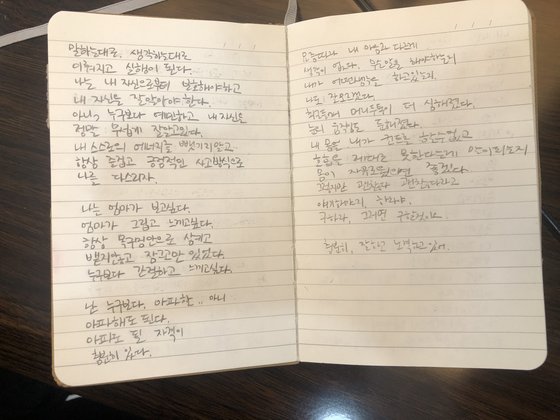 말하는대로, 생각하는대로
이뤄지고 실행이 된다.
나는 내 자신으로부터 당당해야하고
내 자신을 잘 알아야 한다.
아니, 누구보다 예민하고 내 자신을
정말 무섭게 잘 알고있다.
내 스스로의 에너지를 뺏기지않고
항상 즐겁고 긍정적인 사고방식으로
나를 다스리자.
나는 엄마가 보고싶다.
엄마가 그립고 느끼고싶다.
항상 목구멍안으로 삼키고
뱉지않고 참고만 있었다.
누구보다 간절하고 느끼고싶다.
난 누구보다. 아파할.. 아니
아파해도 된다.
아파도 될 자격이
충분히 있다.
요즘따라 내 마음과 다르게
생각이 많다. 무엇으로 해야하는지
내가 어떤생각을 하고있는지
나도 잘모르겠다.
최근들어 더 심해졌다.
내 몸은 내가 컨트롤 할수없고
호흡은 제대로 못한다는게
몸이 자유로웠으면 좋겠다.
괜찮다 괜찮다라고
얘기하지만, 하나님,
구하자, 그러면 구할것이니
충분히, 잘하고 노력하고있어.